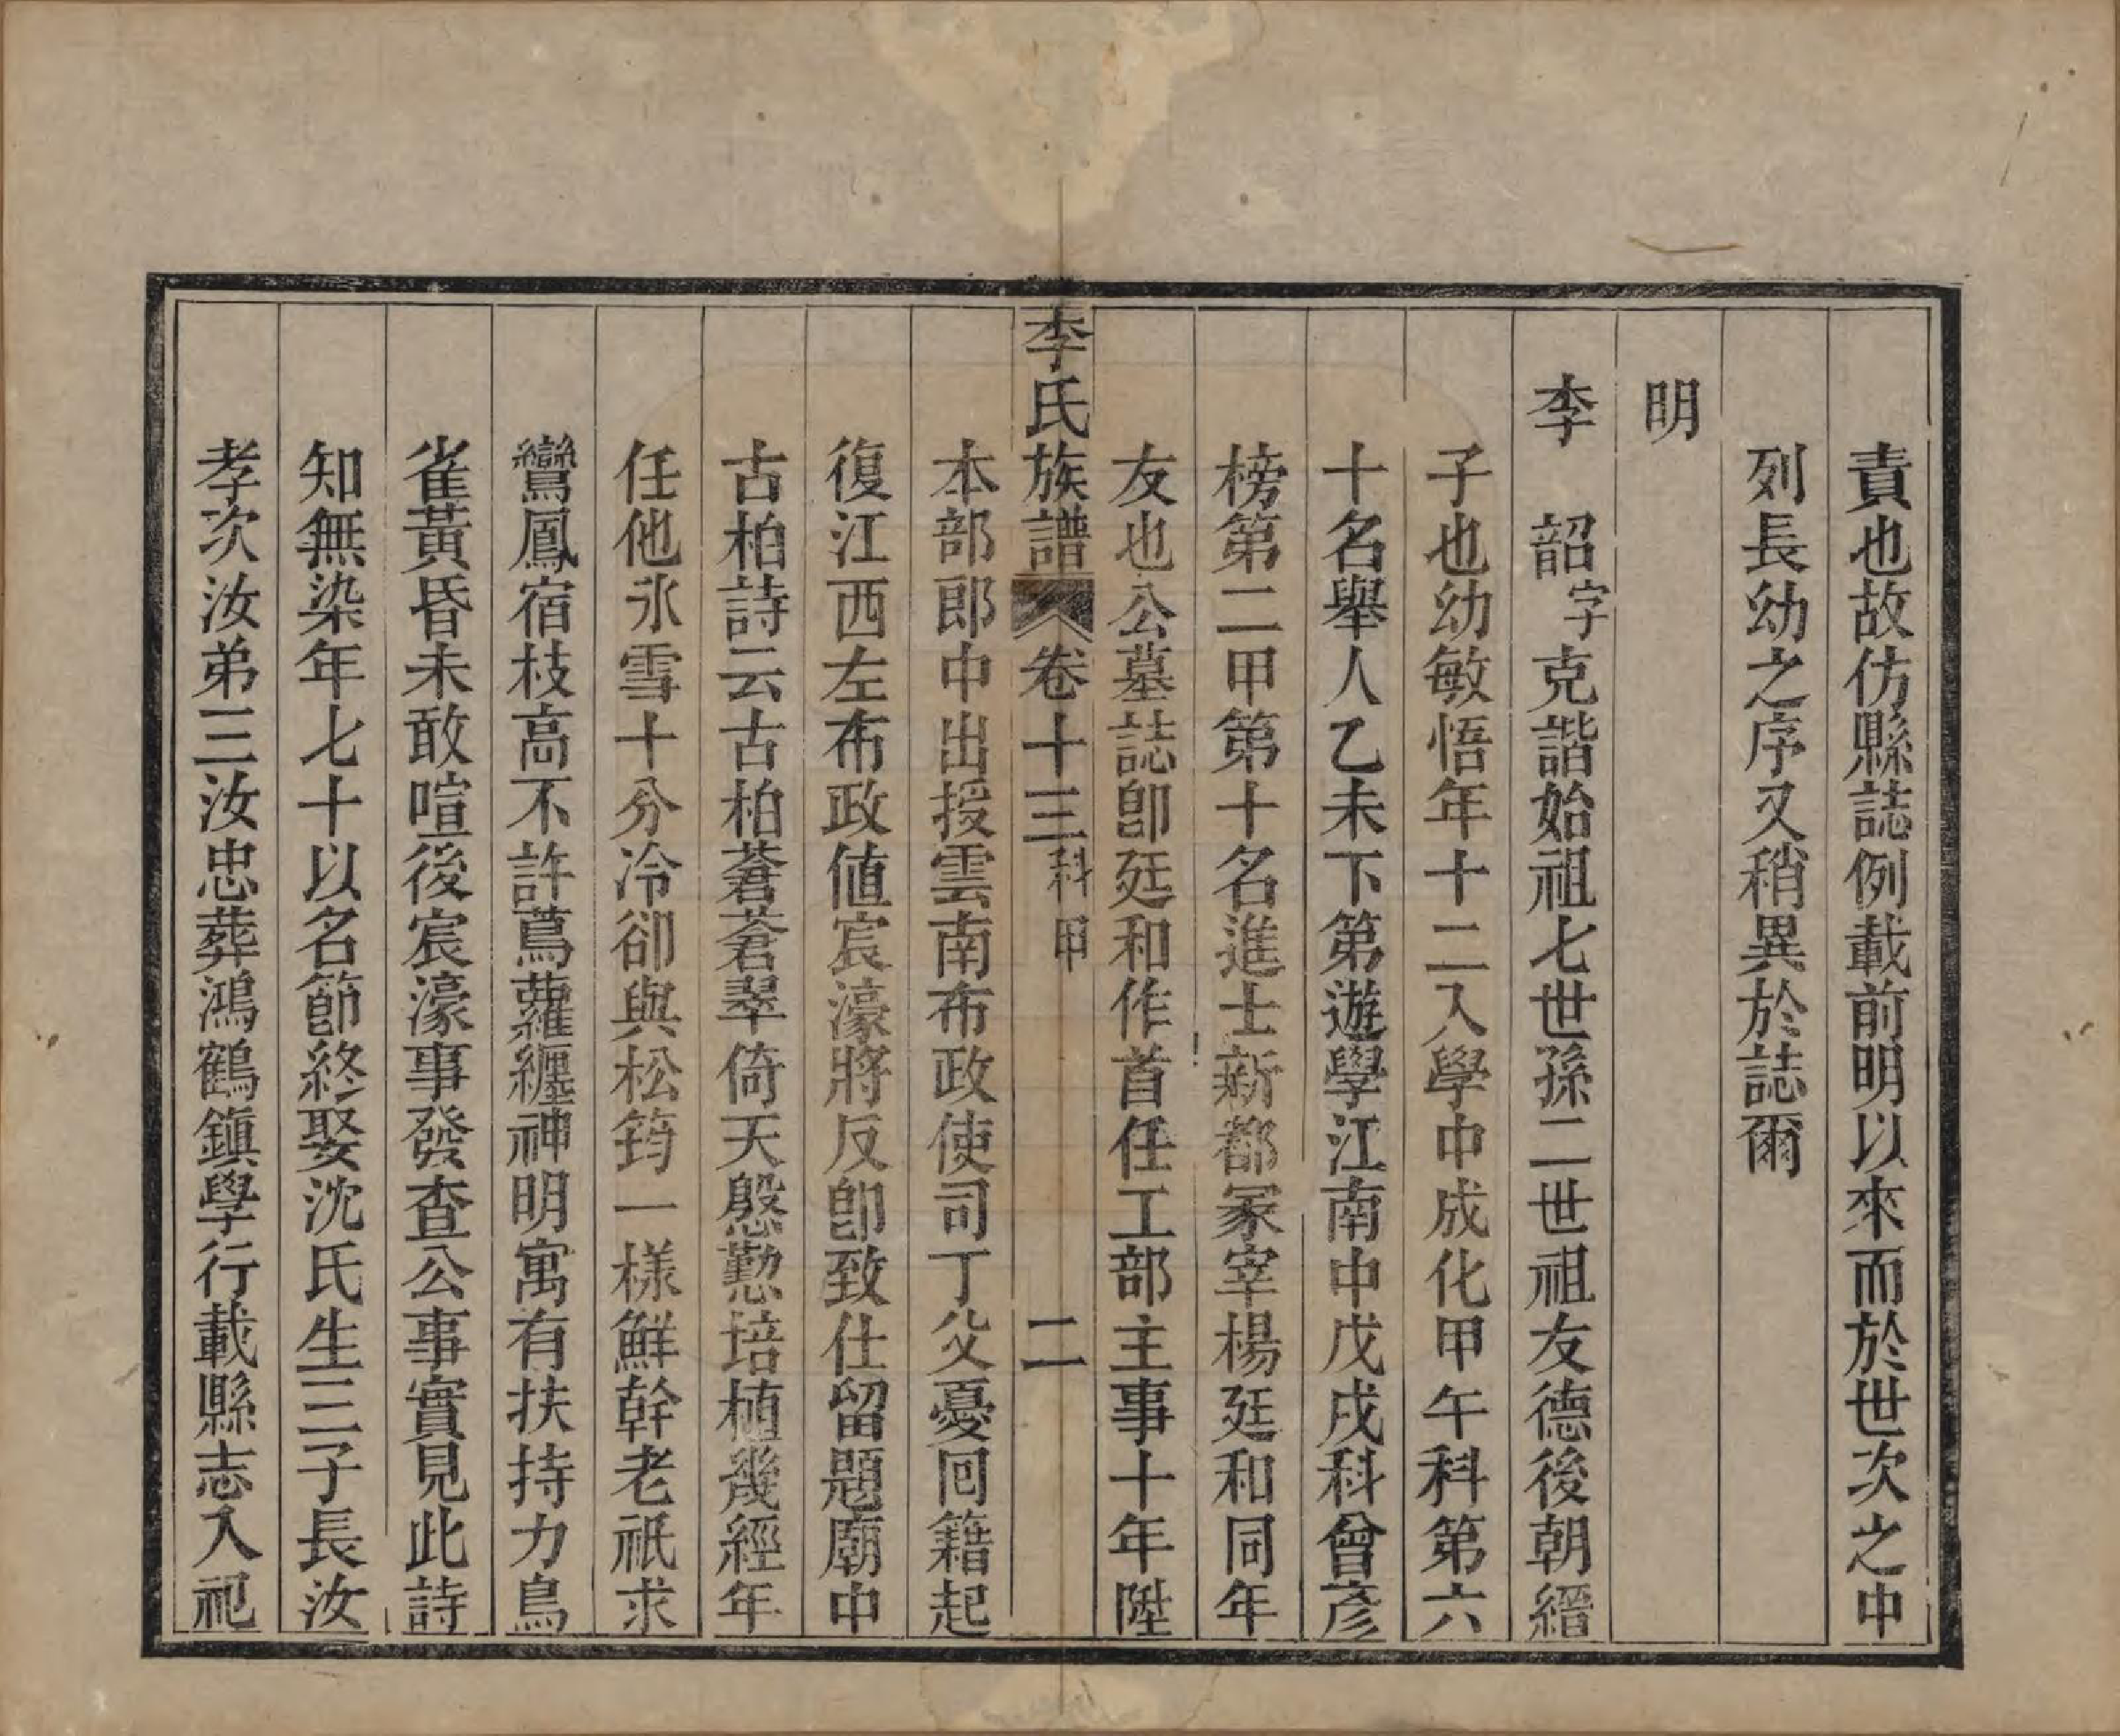 責也故仿縣誌例載前明以來而於世次之中
列長幼之序又稍異於誌爾
明
李　韶字克諧始祖七世孫二世祖友德後朝縉
子也幼敏悟年十二入學中成化甲午科第六
十名舉人乙未下第遊學江南中戊戌科曾彥
榜第二甲第十名進士新都冢宰楊廷和同年
友也公墓誌卽廷和作首任工部主事十年陞
李氏族譜　卷十三　科甲　二
本部郎中出授雲南布政使司丁父憂囘籍起
復江西左布政値宸濠將反卽致仕留題廟中
古柏詩云古柏蒼蒼翠倚天慇懃培植幾經年
任他氷雪十分冷卻與松筠一樣鮮幹老祇求
鸞鳳宿枝高不許蔦蘿纏神明寓有扶持力鳥
雀黃昏未敢喧後宸濠事發查公事實見此詩
知無染年七十以名節終娶沈氏生三子長汝
孝次汝弟三汝忠葬鴻鶴鎮學行載縣志入祀